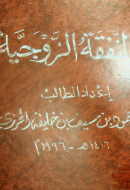 النفقة الزوجية
إعداد الطالب
حمود بن سيف بن خليفة الحرزي
١٤١٦هـ - ١٩٩٦م